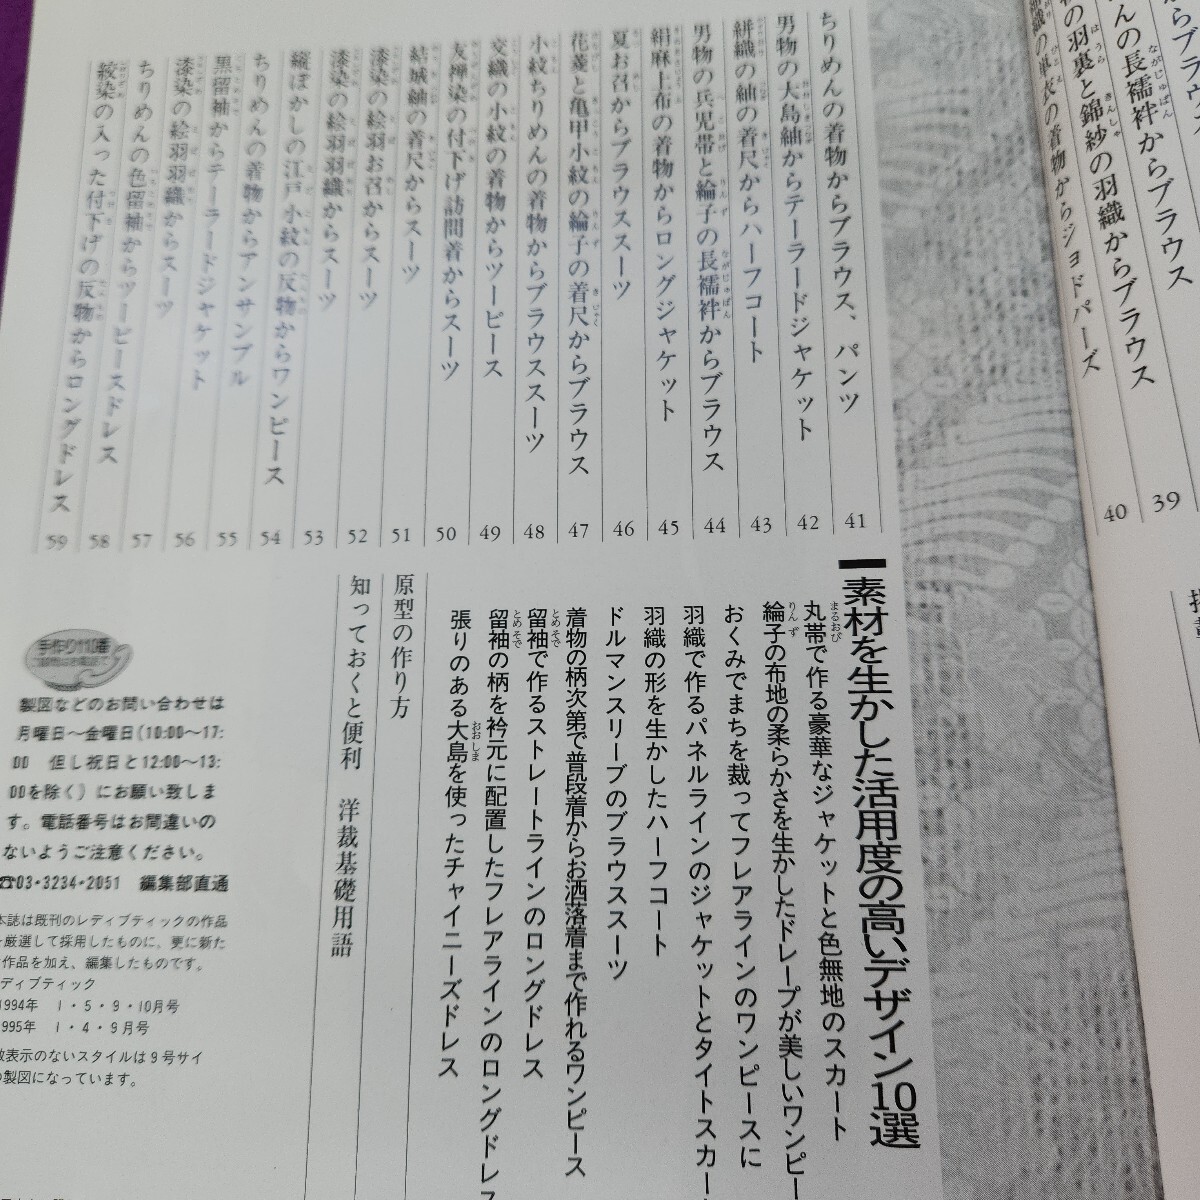 らブラウ
んの長襦袢からブラウス 39
の羽裏と錦紗の羽織からブラウス 40
の単衣の着物からジョドパーズ
ちりめんの着物からブラウス、パンツ 41
男物の大島紬からテーラードジャケット 42
絣織の紬の着尺からハーフコート 43
男物の兵児帯と綸子の長襦袢からブラウス 44
絹麻上布の着物からロングジャケット 45
夏お召からブラウススーツ 46
花菱と亀甲小紋の綸子の着尺からブラウス 47
小紋ちりめんの着物からブラウススーツ 48
交織の小紋の着物からツーピース 49
友禅染の付下げ訪問着からスーツ 50
結城紬の着尺からスーツ 51
漆染の絵羽お召からスーツ 52
漆染の絵羽羽織からスーツ 53
縦ぼかしの江戸小紋の反物からワンピース 54
ちりめんの着物からアンサンブル 55
黒留袖からテーラードジャケット 56
漆染の絵羽羽織からスーツ 57
ちりめんの色留袖からツーピースドレス 58
絞染の入った付下げの反物からロングドレス 59
素材を生かした活用度の高いデザイン10選
丸帯で作る豪華なジャケットと色無地のスカート
綸子の布地の柔らかさを生かしたドレープが美しいワンピー
おくみでまちを裁ってフレアラインのワンピースに
羽織で作るパネルラインのジャケットとタイトスカー
羽織の形を生かしたハーフコート
ドルマンスリーブのブラウススーツ
着物の柄次第で普段着からお洒落着まで作れるワンピース
留袖で作るストレートラインのロングドレス
留袖の柄を衿元に配置したフレアラインのロングドレス
張りのある大島を使ったチャイニーズドレス
原型の作り方
知っておくと便利 洋裁基礎用語
手作り110番
ご質問はお電話で
製図などのお問い合わせは
月曜日〜金曜日(10:00〜17:
00 但し祝日と12:00〜13:
00を除く)にお願い致しま
す。電話番号はお間違いの
ないようご注意ください。
☎03・3234・2051 編集部直通
本誌は既刊のレディブティックの作品
を厳選して採用したものに、更に新た
作品を加え、編集したものです。
ディブティック
1994年 1・5・9・10月号
1995年 1・4・9月号
数表示のないスタイルは9号サイ
の製図になっています。